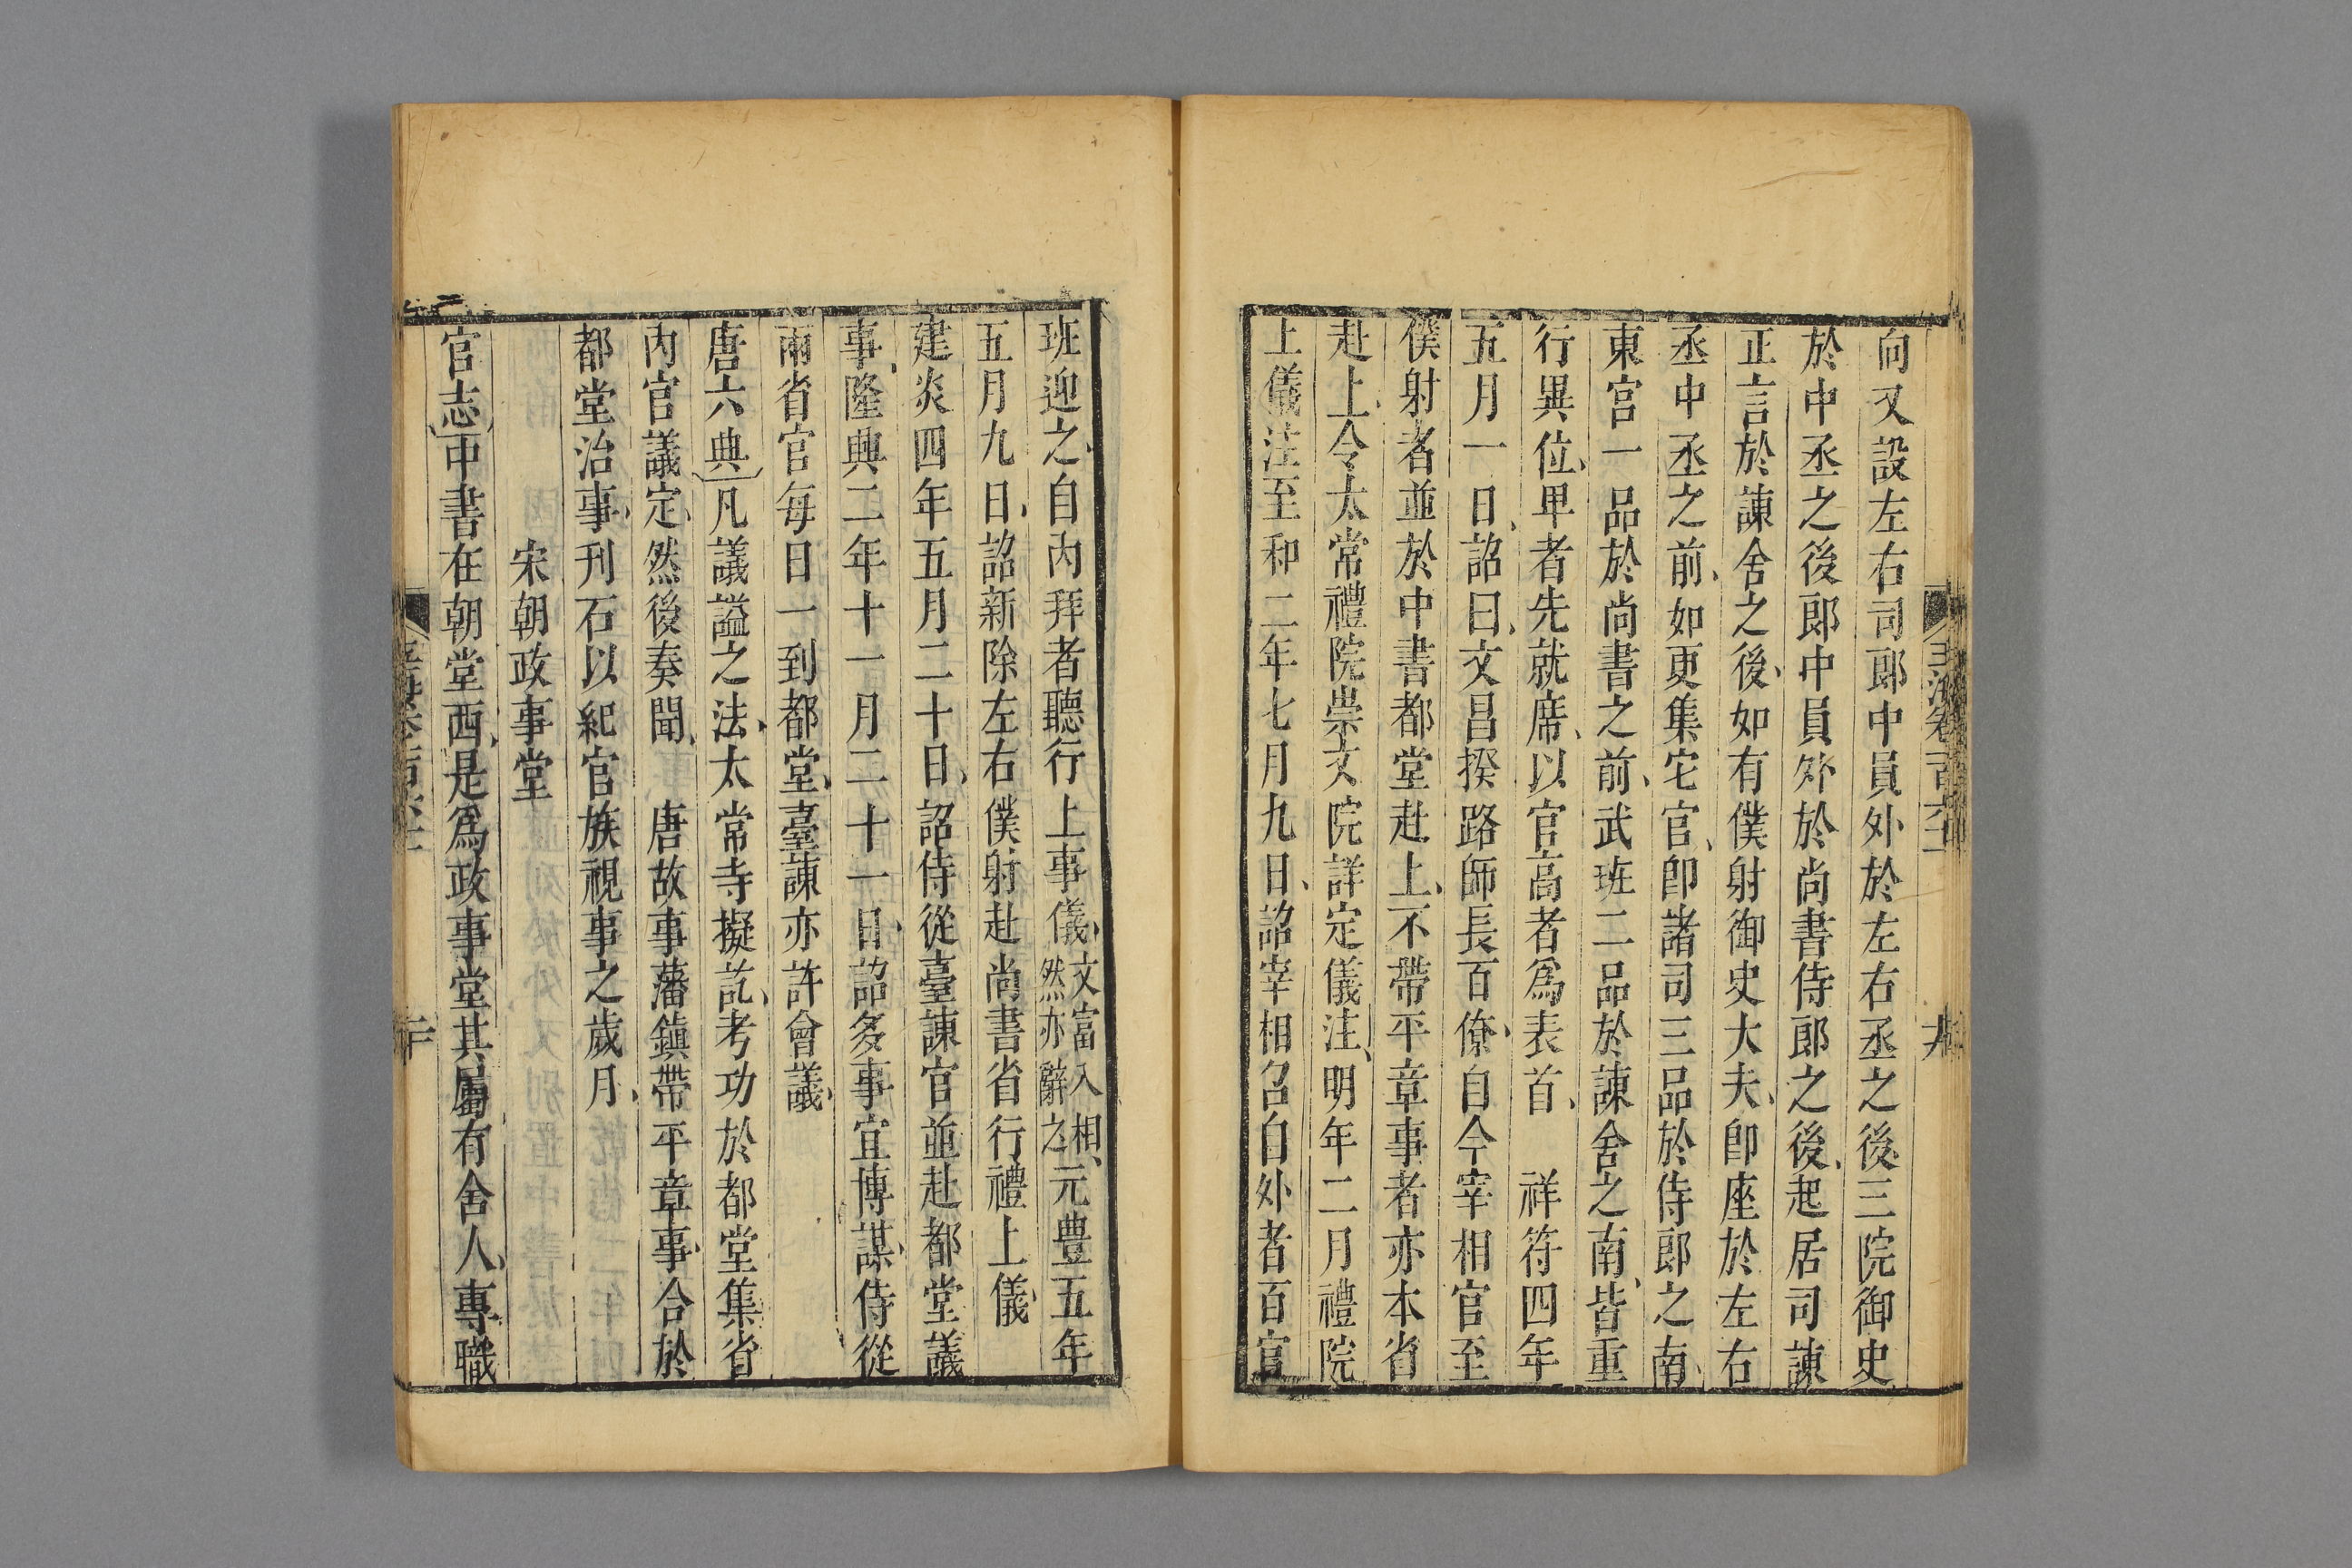 向又設左右司郎中員外於左右丞之後三院御史
於中丞之後郎中員外於尚書侍郎之後起居司諫
正言於諫舍之後如有僕射御史大夫即座於左右
丞中丞之前如更集宅官即諸司三品於侍郎之南
東宮一品於尚書之前武班二品於諫舍之南皆重
行異位卑者先就席以官高者爲表首　祥符四年
五月一日詔曰文昌揆路師長百僚自今宰相官至
僕射者並於中書都堂赴上不帶平章事者亦本省
赴上令太常禮院崇文院詳定儀注明年二月禮院
上儀注至和二年七月九日詔宰相召自外者百官
班迎之自內拜者聽行上事儀文富入相然亦辭之元豊五年
五月九日詔新除左右僕射赴尚書省行禮上儀
建炎四年五月二十日詔侍從臺諫官並赴都堂議
事隆興二年十一月二十一日詔多事宜博謀侍從
兩省官每日一到都堂臺諫亦許會議
唐六典凡議謚之法太常寺擬訖考功於都堂集省
內官議定然後奏聞　唐故事藩鎮帶平章事合於
都堂治事刊石以紀官族視事之歲月
宋朝政事堂
官志中書在朝堂西是爲政事堂其屬有舍人專職